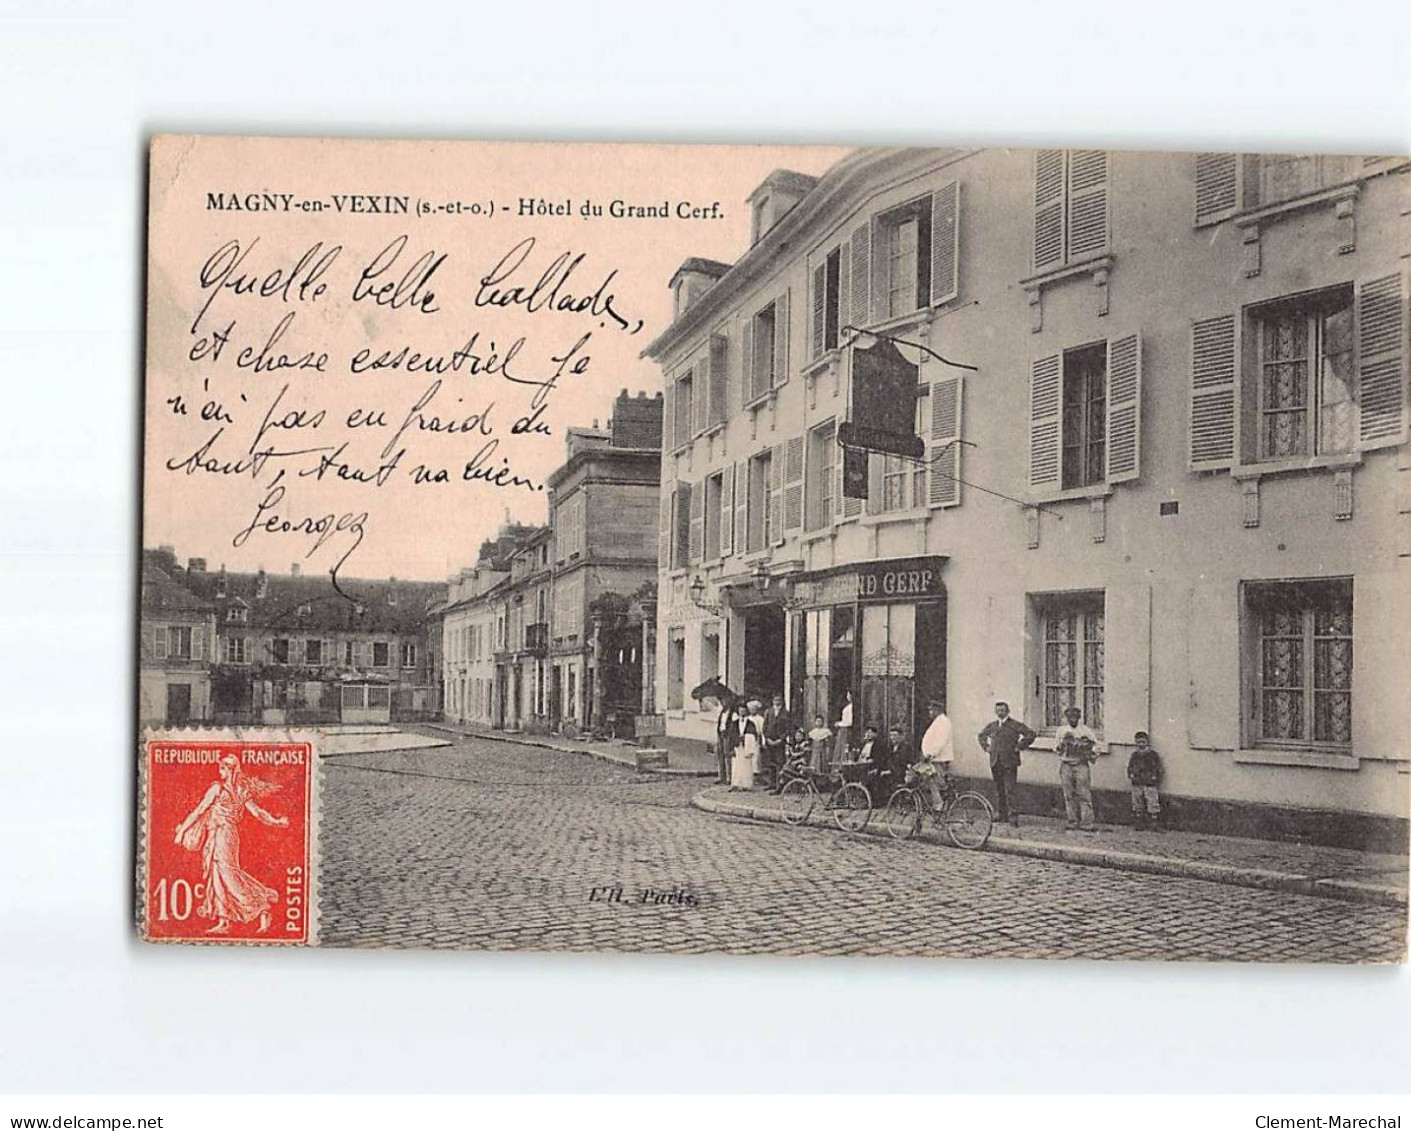 MAGNY-en-VEXIN (s.-et-o.) - Hôtel du Grand Cerf.
Quelle belle ballade,
et chose essentiel, je
n'ai pas eu froid du
tout, tout va bien.
Georges
GRAND CERF
RÉPUBLIQUE FRANÇAISE
10c POSTES
L'H. Paris.
www.delcampe.net
Clement-Marechal